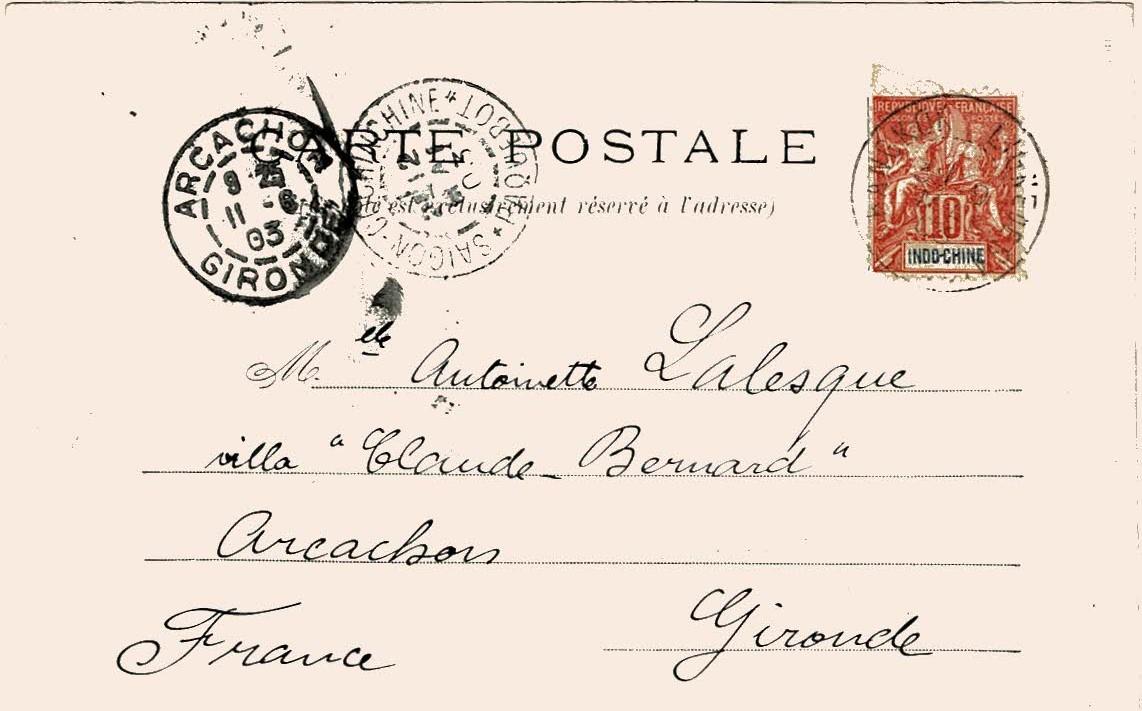 CARTE POSTALE
(Ce côté est exclusivement réservé à l'adresse)
ARCACHON
9 25
11 -6
03
GIRONDE
SAIGON-COCHINCHINE
REPUBLIQUE FRANÇAISE
COLONIES POSTES
10
INDO-CHINE
Melle Antoinette Lalesque
villa "Claude-Bernard"
Arcachon
Gironde
France